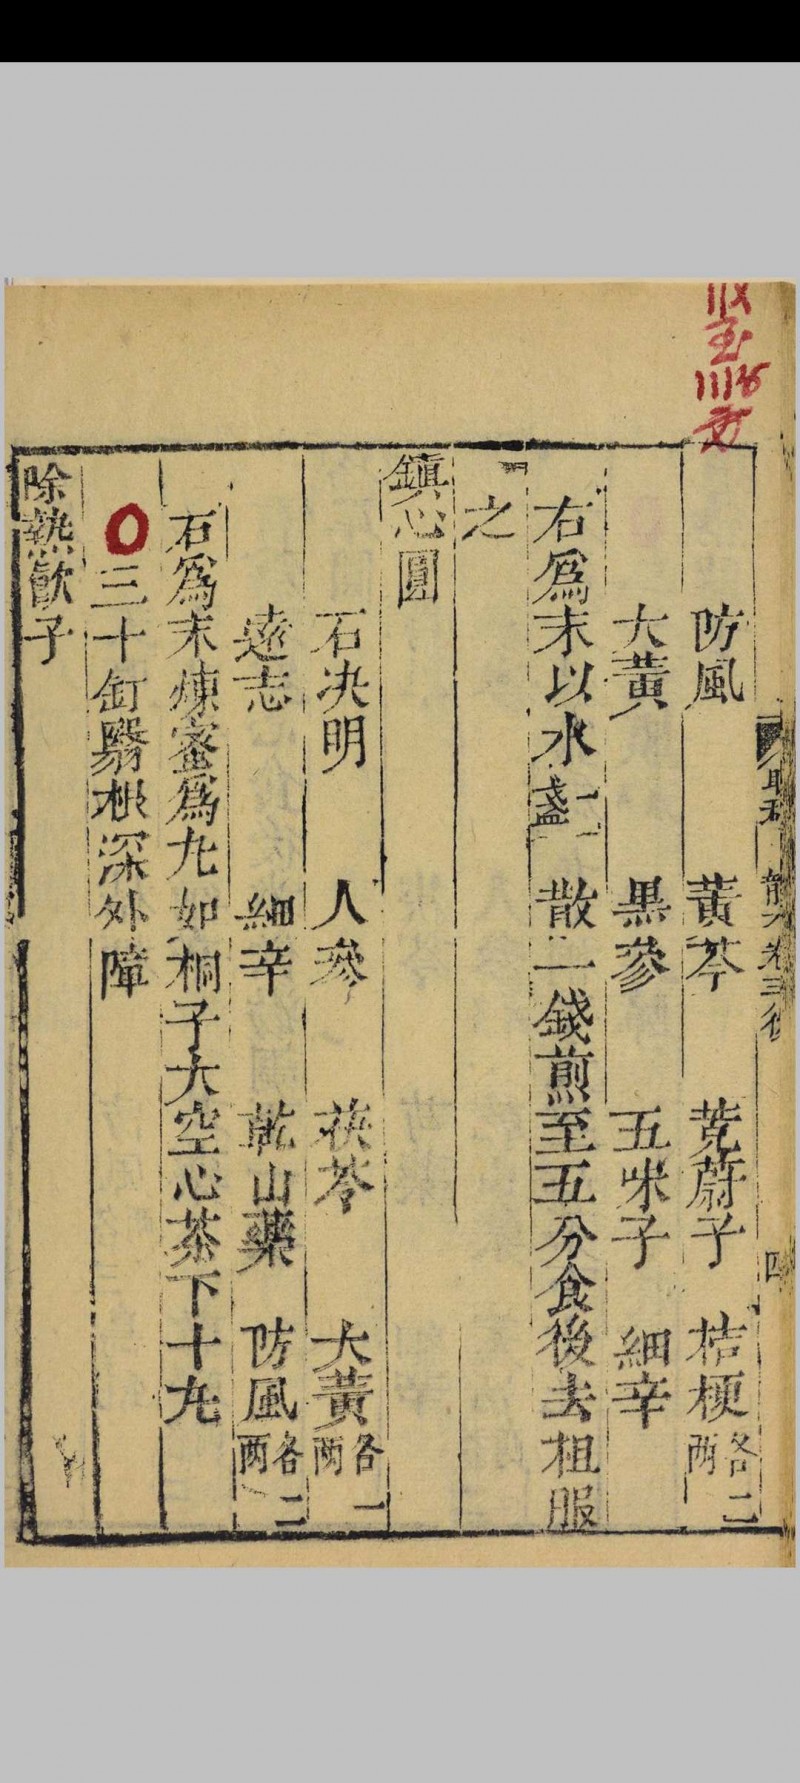 防風 黃芩 茺蔚子 桔梗各二两
大黃 黑參 五味子 細辛
右爲末以水一盞散一錢煎至五分食後去柤服
之
鎮心圓
石决明 人參 茯苓 大黃各一两
遠志 細辛 乾山藥 防風各二两
石爲末煉蜜爲九如桐子大空心茶下十九
三十釘翳根深外障
除熱飮子